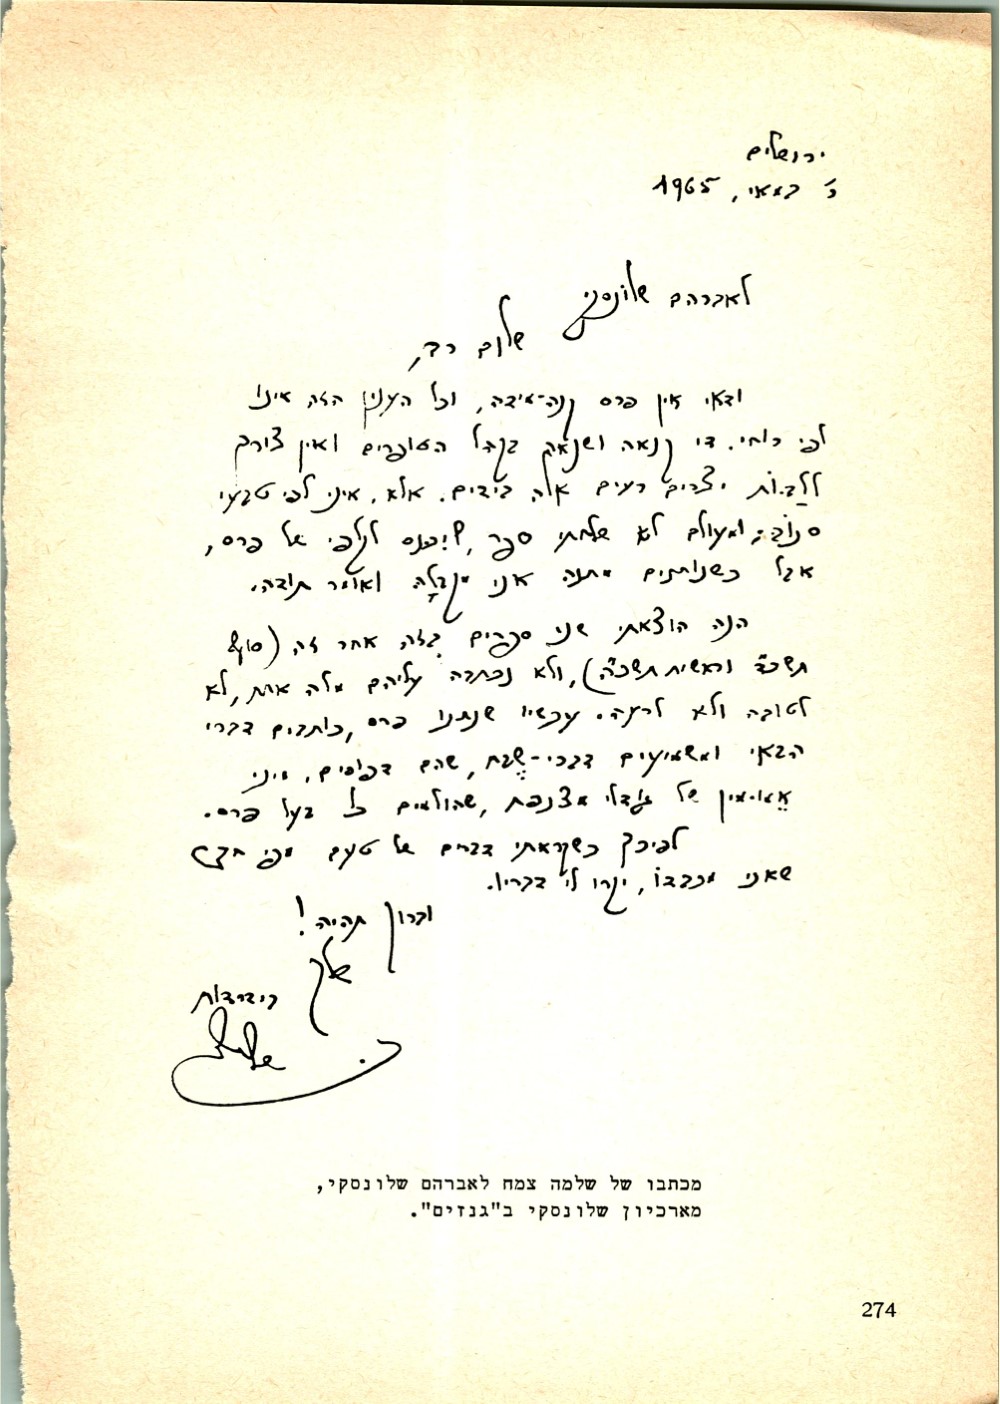 ירושלים
במאי, 1965
לאברהם שלונסקי
שלום רב,
ודאי אין פרס קנה-מידה, וכל הענין הזה אינו
לפי רוחי. די קנאה ושנאה בקהל הסופרים ואין צורך
ללַבּות יצרים רעים אלה בידים. אלא, איני לפי טבעי
סנוֹבּ; ומעולם לא שלחתי ספר, שיכנס לקלפי של פרס,
אבל כשנותנים מתנה אני מקבלָהּ ואומר תודה.
הנה הוצאתי שני ספרים בזה אחר זה (סוף
תשכ"ד וראשית תשכ"ה), ולא נכתבה עליהם מלה אחת, לא
לטובה ולא לרעה. עכשיו שנתנו פרס, כותבים דברי
הבאי ומשמיעים דברי-שֶׁבח, שהם דפוסים, מיני
של מצנפת, שהולמים כל בעל פרס.
לפיכך כשקראתי דברים של טעם מפי חבר
שאני מכבדוֹ, יקרו לי דבריו.
וברוך תהיה!
שלך
בידידות
ש. צמח
מכתבו של שלמה צמח לאברהם שלונסקי,
מארכיון שלונסקי ב"גנזים".
274